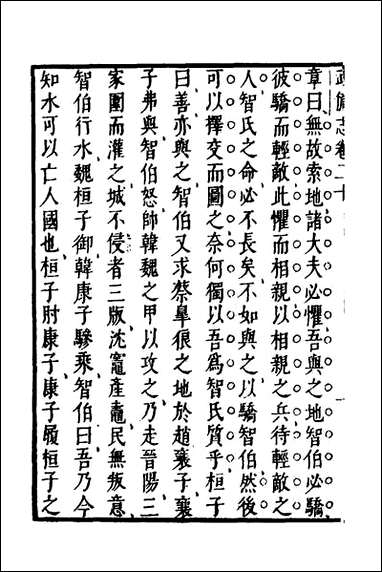 武備志卷二十
章曰無故索地諸大夫必懼吾與之地智伯必驕
彼驕而輕敵此懼而相親以相親之兵待輕敵之
人智氏之命必不長矣不如與之以驕智伯然後
可以擇交而圖之奈何獨以吾爲智氏質乎桓子
曰善亦與之智伯又求蔡皐狼之地於趙襄子襄
子弗與智伯怒帥韓魏之甲以攻之乃走晉陽三
家圍而灌之城不侵者三版沈竈產鼃民無叛意
智伯行水魏桓子御韓康子驂乘智伯曰吾乃今
知水可以亡人國也桓子肘康子康子履桓子之